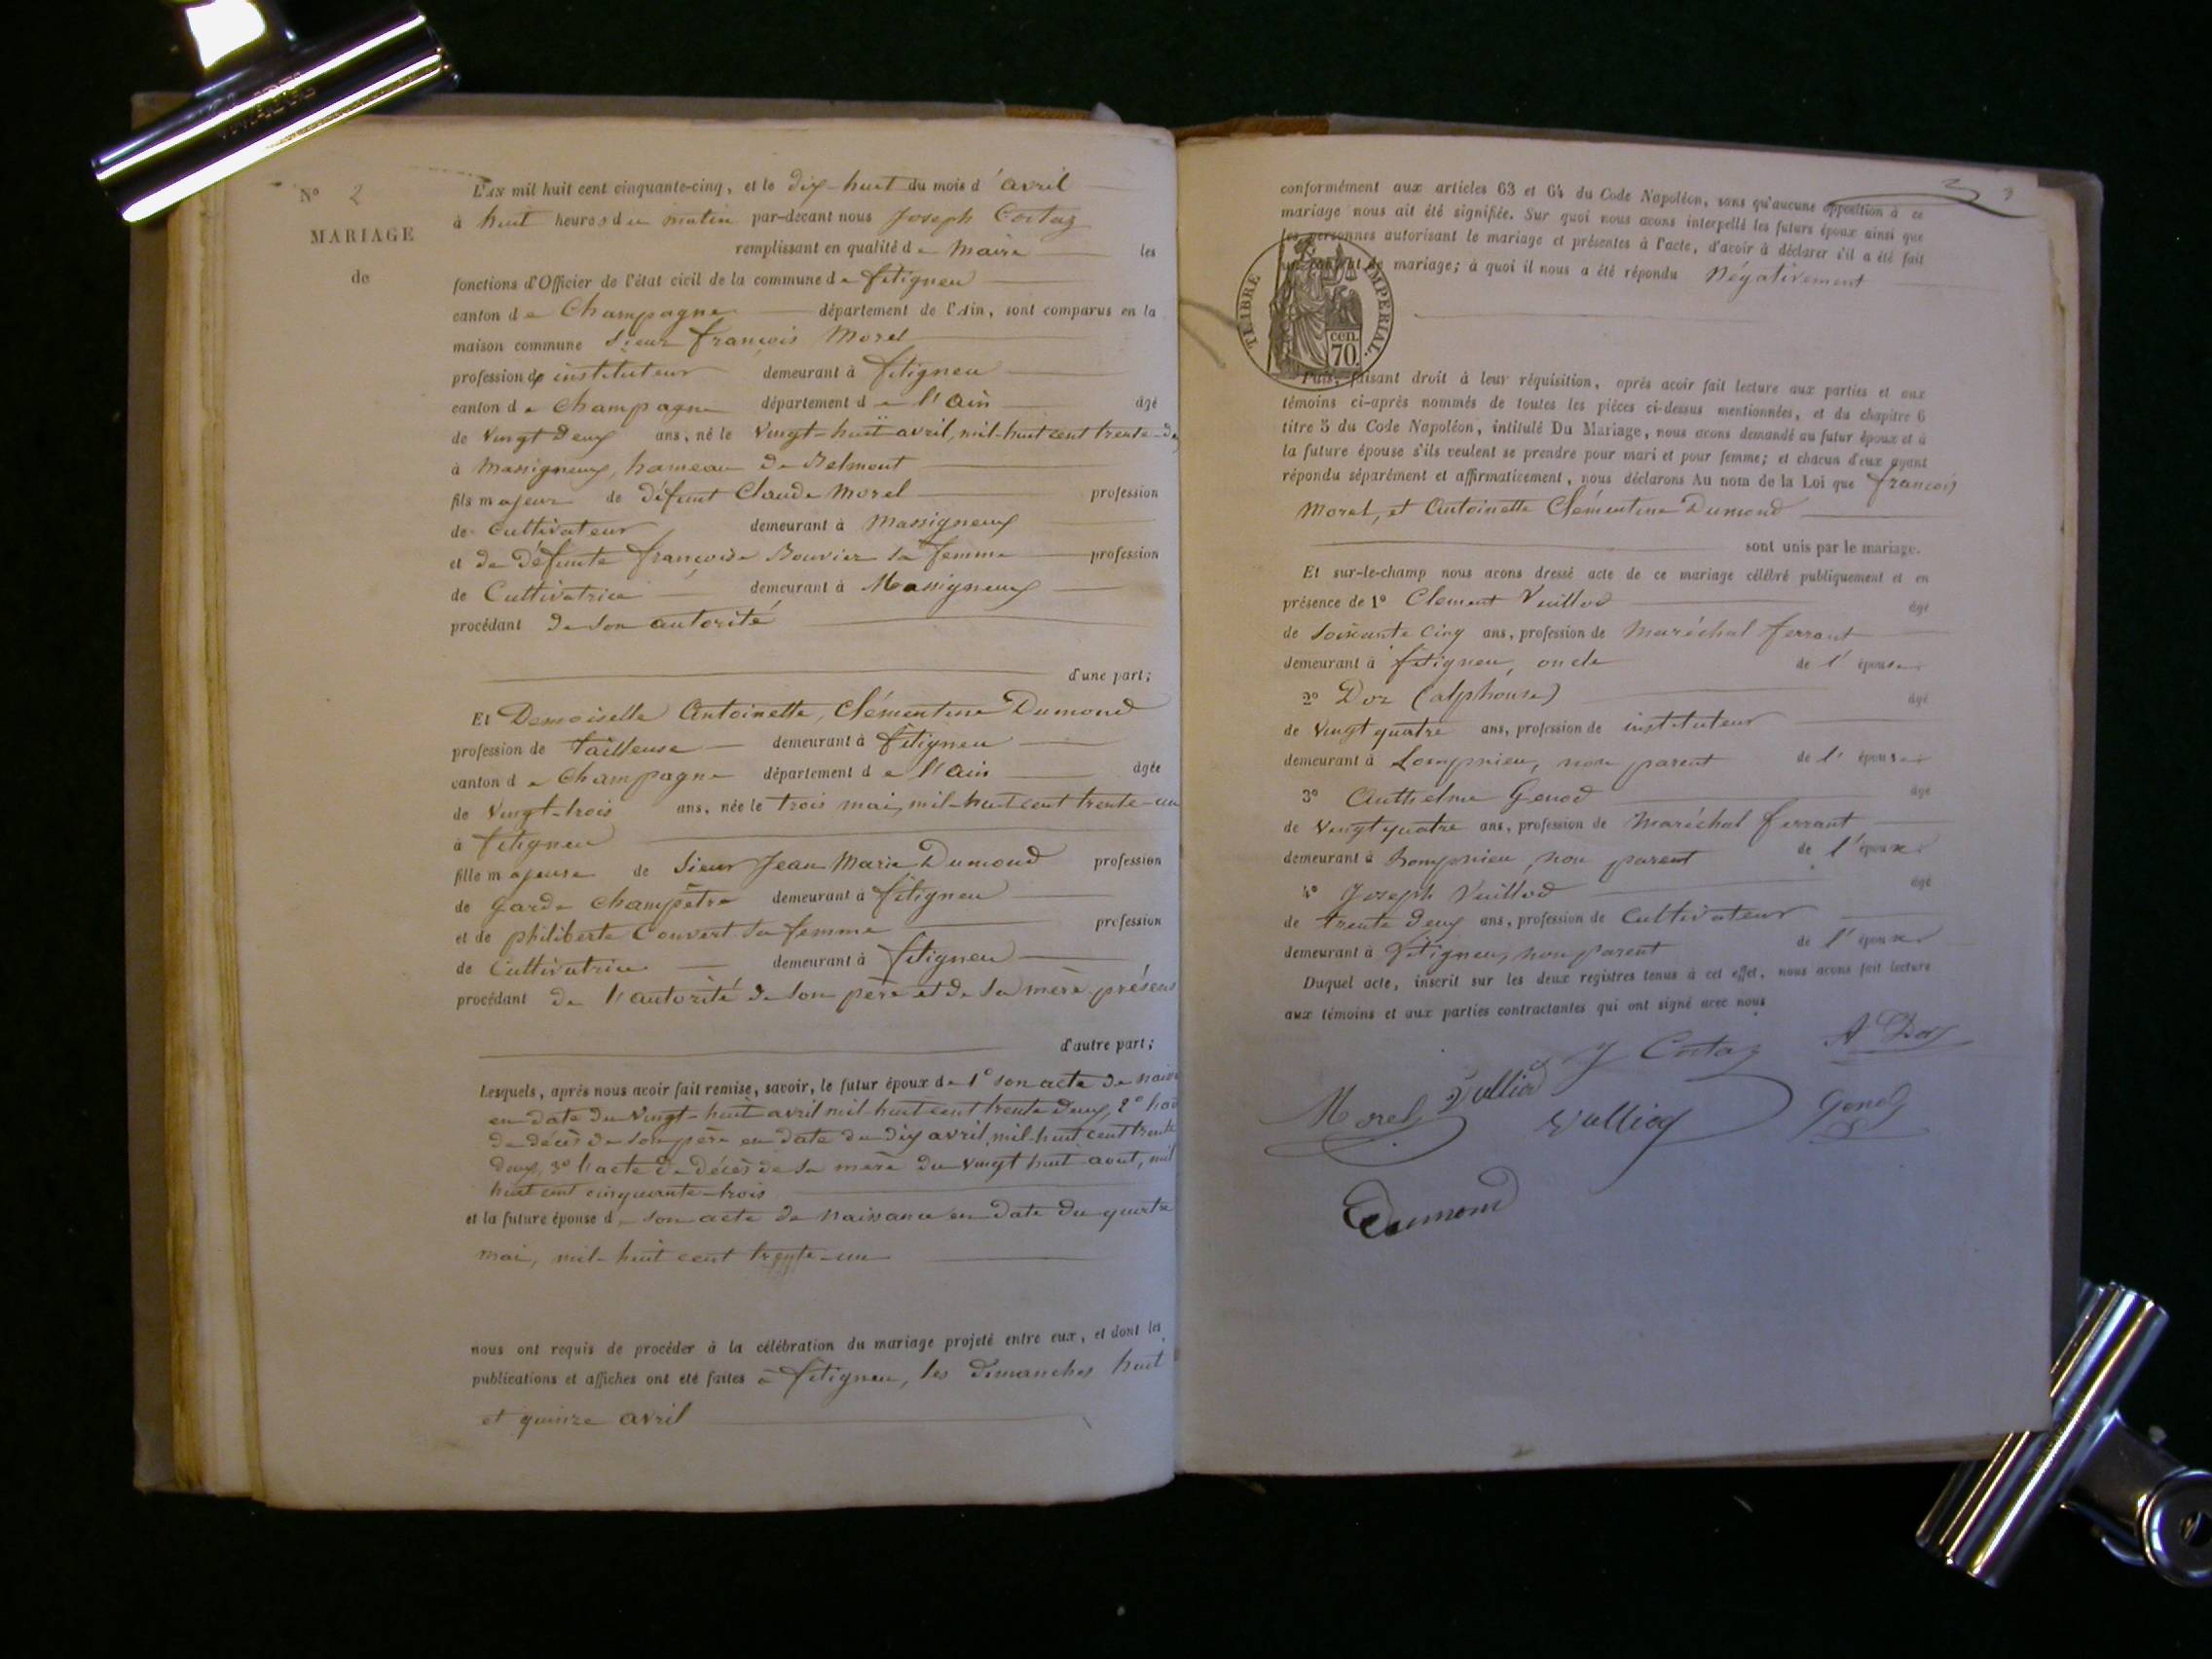 N° 2
MARIAGE
de
L'AN mil huit cent cinquante-cinq, et le dix-huit du mois d'avril
à huit heures du matin par-devant nous Joseph Costaz
remplissant en qualité de Maire les
fonctions d'Officier de l'état civil de la commune de fitigneu
canton de Champagne département de l'Ain, sont comparus en la
maison commune Sieur françois Morel
profession de instituteur demeurant à fitigneu
canton de Champagne département de l'Ain âgé
de Vingt Deux ans, né le Vingt-huit avril, mil-huit cent trente-de
à Massigneux, hameau de Belmont
fils majeur de défunt Claude Morel profession
de Cultivateur demeurant à Massigneux
et de Défunte françoise Bouvier sa femme profession
de Cultivatrice demeurant à Massigneux
procédant de son autorité
d'une part;
Et Demoiselle Antoinette, Clémentine Dumond
profession de tailleuse demeurant à fitigneu
canton de Champagne département de l'Ain âgée
de Vingt-trois ans, née le trois mai, mil-huit cent trente-un
à fitigneu
fille majeure de Sieur Jean Marie Dumond profession
de garde champêtre demeurant à fitigneu
et de philiberte Convert sa femme profession
de Cultivatrice demeurant à fitigneu
procédant de l'autorité de son père et de sa mère présens
d'autre part;
Lesquels, après nous avoir fait remise, savoir, le futur époux de 1° son acte de naiss
en date du Vingt-huit avril mil huit cent trente deux, 2°
de décès de son père en date du dix avril, mil-huit cent trente
deux, 3° l'acte de décès de sa mère du vingt huit aout, mil
huit cent cinquante-trois
et la future épouse de son acte de naissance en date du quatre
mai, mil-huit cent trente-un
nous ont requis de procéder à la célébration du mariage projeté entre eux, et dont les
publications et affiches ont été faites à fitigneu, les dimanches huit
et quinze avril
3
conformément aux articles 63 et 64 du Code Napoléon, sans qu'aucune opposition à ce
mariage nous ait été signifiée. Sur quoi nous avons interpellé les futurs époux ainsi que
les personnes autorisant le mariage et présentes à l'acte, d'avoir à déclarer s'il a été fait
un contrat de mariage; à quoi il nous a été répondu Négativement
TIMBRE IMPERIAL.
cen.
70
Puis, faisant droit à leur réquisition, après avoir fait lecture aux parties et aux
témoins ci-après nommés de toutes les pièces ci-dessus mentionnées, et du chapitre 6
titre 5 du Code Napoléon, intitulé Du Mariage, nous avons demandé au futur époux et à
la future épouse s'ils veulent se prendre pour mari et pour femme; et chacun d'eux ayant
répondu séparément et affirmativement, nous déclarons Au nom de la Loi que françois
Morel, et Antoinette Clémentine Dumond
sont unis par le mariage.
Et sur-le-champ nous avons dressé acte de ce mariage célébré publiquement et en
présence de 1° Clement Vuillod âgé
de soixante Cinq ans, profession de Maréchal ferrant
demeurant à fitigneu, oncle de l'épouse
2° Doz (alphonse) âgé
de Vingt quatre ans, profession de instituteur
demeurant à Lompnieu, non parent de l'épouse
3° Anthelme Genod âgé
de Vingt quatre ans, profession de Maréchal ferrant
demeurant à Lompnieu, non parent de l'époux
4° Joseph Vuillod âgé
de trente deux ans, profession de Cultivateur
demeurant à fitigneu, non parent de l'époux
Duquel acte, inscrit sur les deux registres tenus à cet effet, nous avons fait lecture
aux témoins et aux parties contractantes qui ont signé avec nous
J Costaz A Doz
Morel Vulliod Vulliod Genod
Dumond